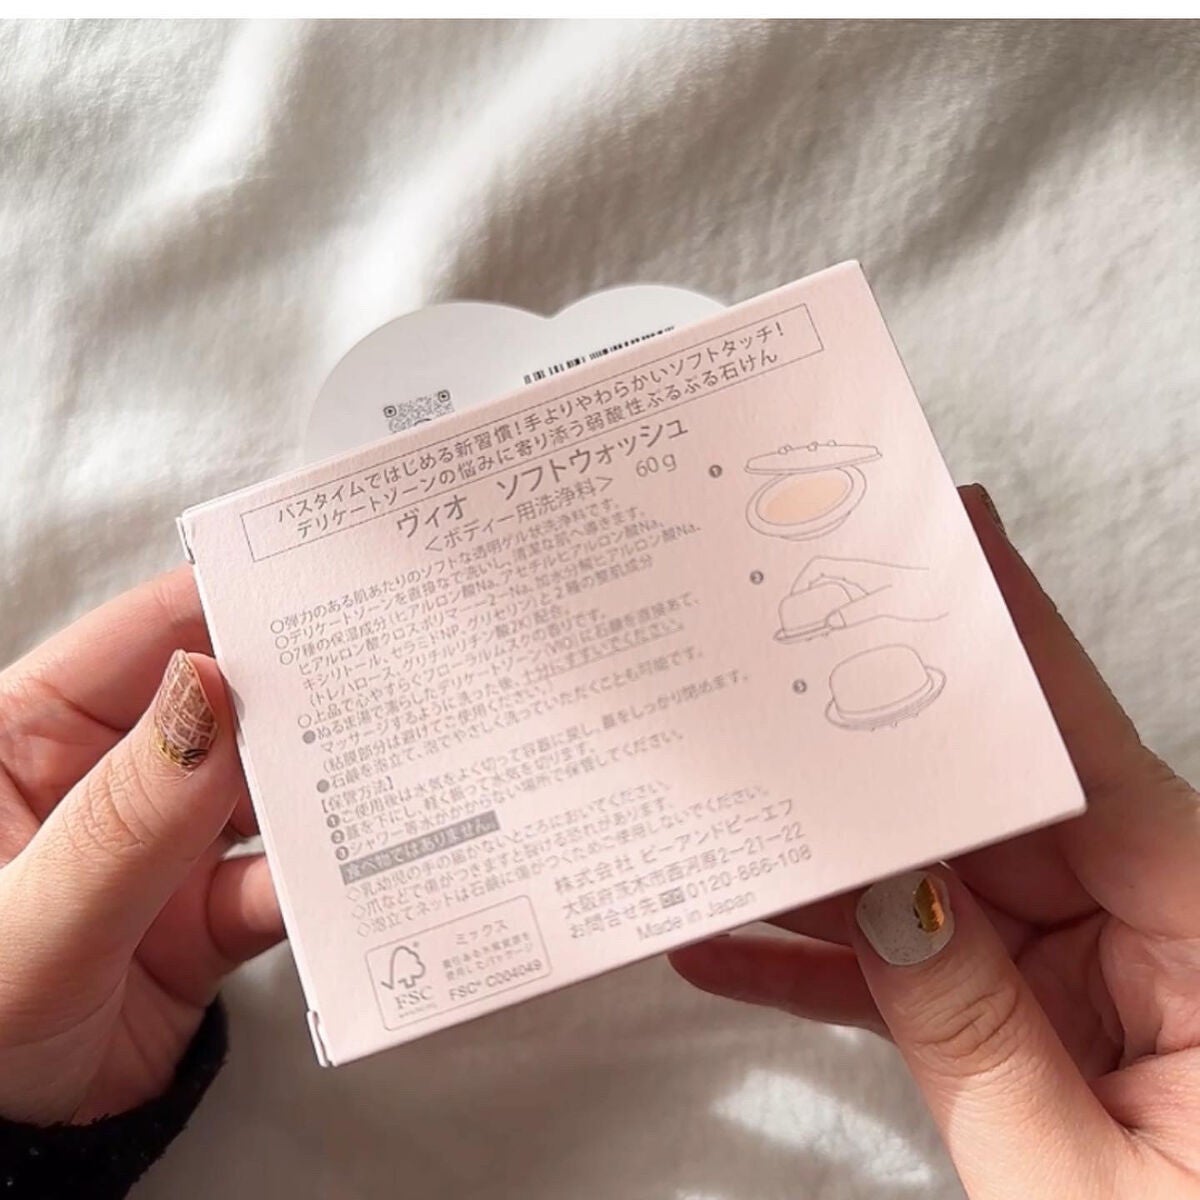 バスタイムではじめる新習慣！手よりやわらかいソフトタッチ！
デリケートゾーンの悩みに寄り添う弱酸性ぷるぷる石けん
ヴィオ ソフトウォッシュ
＜ボディー用洗浄料＞ 60g
○弾力のある肌あたりのソフトな透明ゲル状洗浄料です。
○デリケートゾーンを直接なで洗いし、清潔な肌へ導きます。
○7種の保湿成分（ヒアルロン酸Na、アセチルヒアルロン酸Na、
ヒアルロン酸クロスポリマー－2－Na、加水分解ヒアルロン酸Na、
キシリトール、セラミドNP、グリセリン）と2種の整肌成分
（トレハロース、グリチルリチン酸2K）配合。
○上品で心やすらぐフローラルムスクの香りです。
●ぬるま湯で濡らしたデリケートゾーン（VIO）に石鹸を直接あて、
マッサージするように洗った後、十分にすすいでください。
（粘膜部分は避けてご使用ください。）
●石鹸を泡立て、泡でやさしく洗っていただくことも可能です。
【保管方法】
❶ご使用後は水気をよく切って容器に戻し、蓋をしっかり閉めます。
❷蓋を下にし、軽く振って水気を切ります。
❸シャワー等水がかからない場所で保管してください。
食べ物ではありません。
◇乳幼児の手の届かないところにおいてください。
◇爪などで傷がつきますと裂ける恐れがあります。
◇泡立てネットは石鹸に傷がつくためご使用しないでください。
株式会社 ピーアンドピーエフ
大阪府茨木市西河原2－21－22
お問合せ先 0120-866-108
Made in Japan
FSC
ミックス
責任ある木質資源を
使用したパッケージ
FSC® C004049
❶
❷
❸